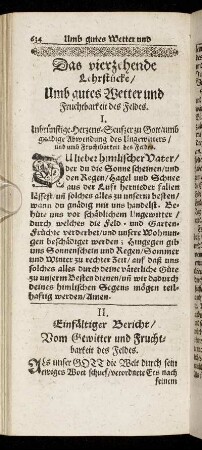 634 Umb gutes Wetter und
Das vierzehende
Lehrstücke/
Umb gutes Wetter und
Fruchtbarkeit des Feldes.
I.
Inbrünstige Hertzens-Seufzer zu Gott/umb
gnädige Abwendung des Ungewitters/
und umb Fruchtbarkeit des Feldes.
O Lieber himlischer Vater/
der du die Sonne scheinen/und
den Regen/Hagel und Schnee
aus der Lufft hernieder fallen
lässest/uñ solches alles zu unserm besten/
wann du gnädig mit uns handelst. Be-
hüte uns vor schädlichem Ungewitter/
durch welches die Feld- und Garten-
Früchte verderbet/und unsere Wohnun-
gen beschädiget werden: Hingegen gib
uns Sonnenschein und Regen/Sommer
und Winter zu rechter Zeit/auf daß uns
solches alles durch deine väterliche Güte
zu unserm Besten dienen/uñ wir dadurch
deines himlischen Segens mögen teil-
hafftig werden/Amen.
II.
Einfältiger Bericht/
Vom Gewitter und Frucht-
barkeit des Feldes.
Als unser GOTT die Welt durch sein
ewiges Wort schuef/verordnete Er/nach
seinem